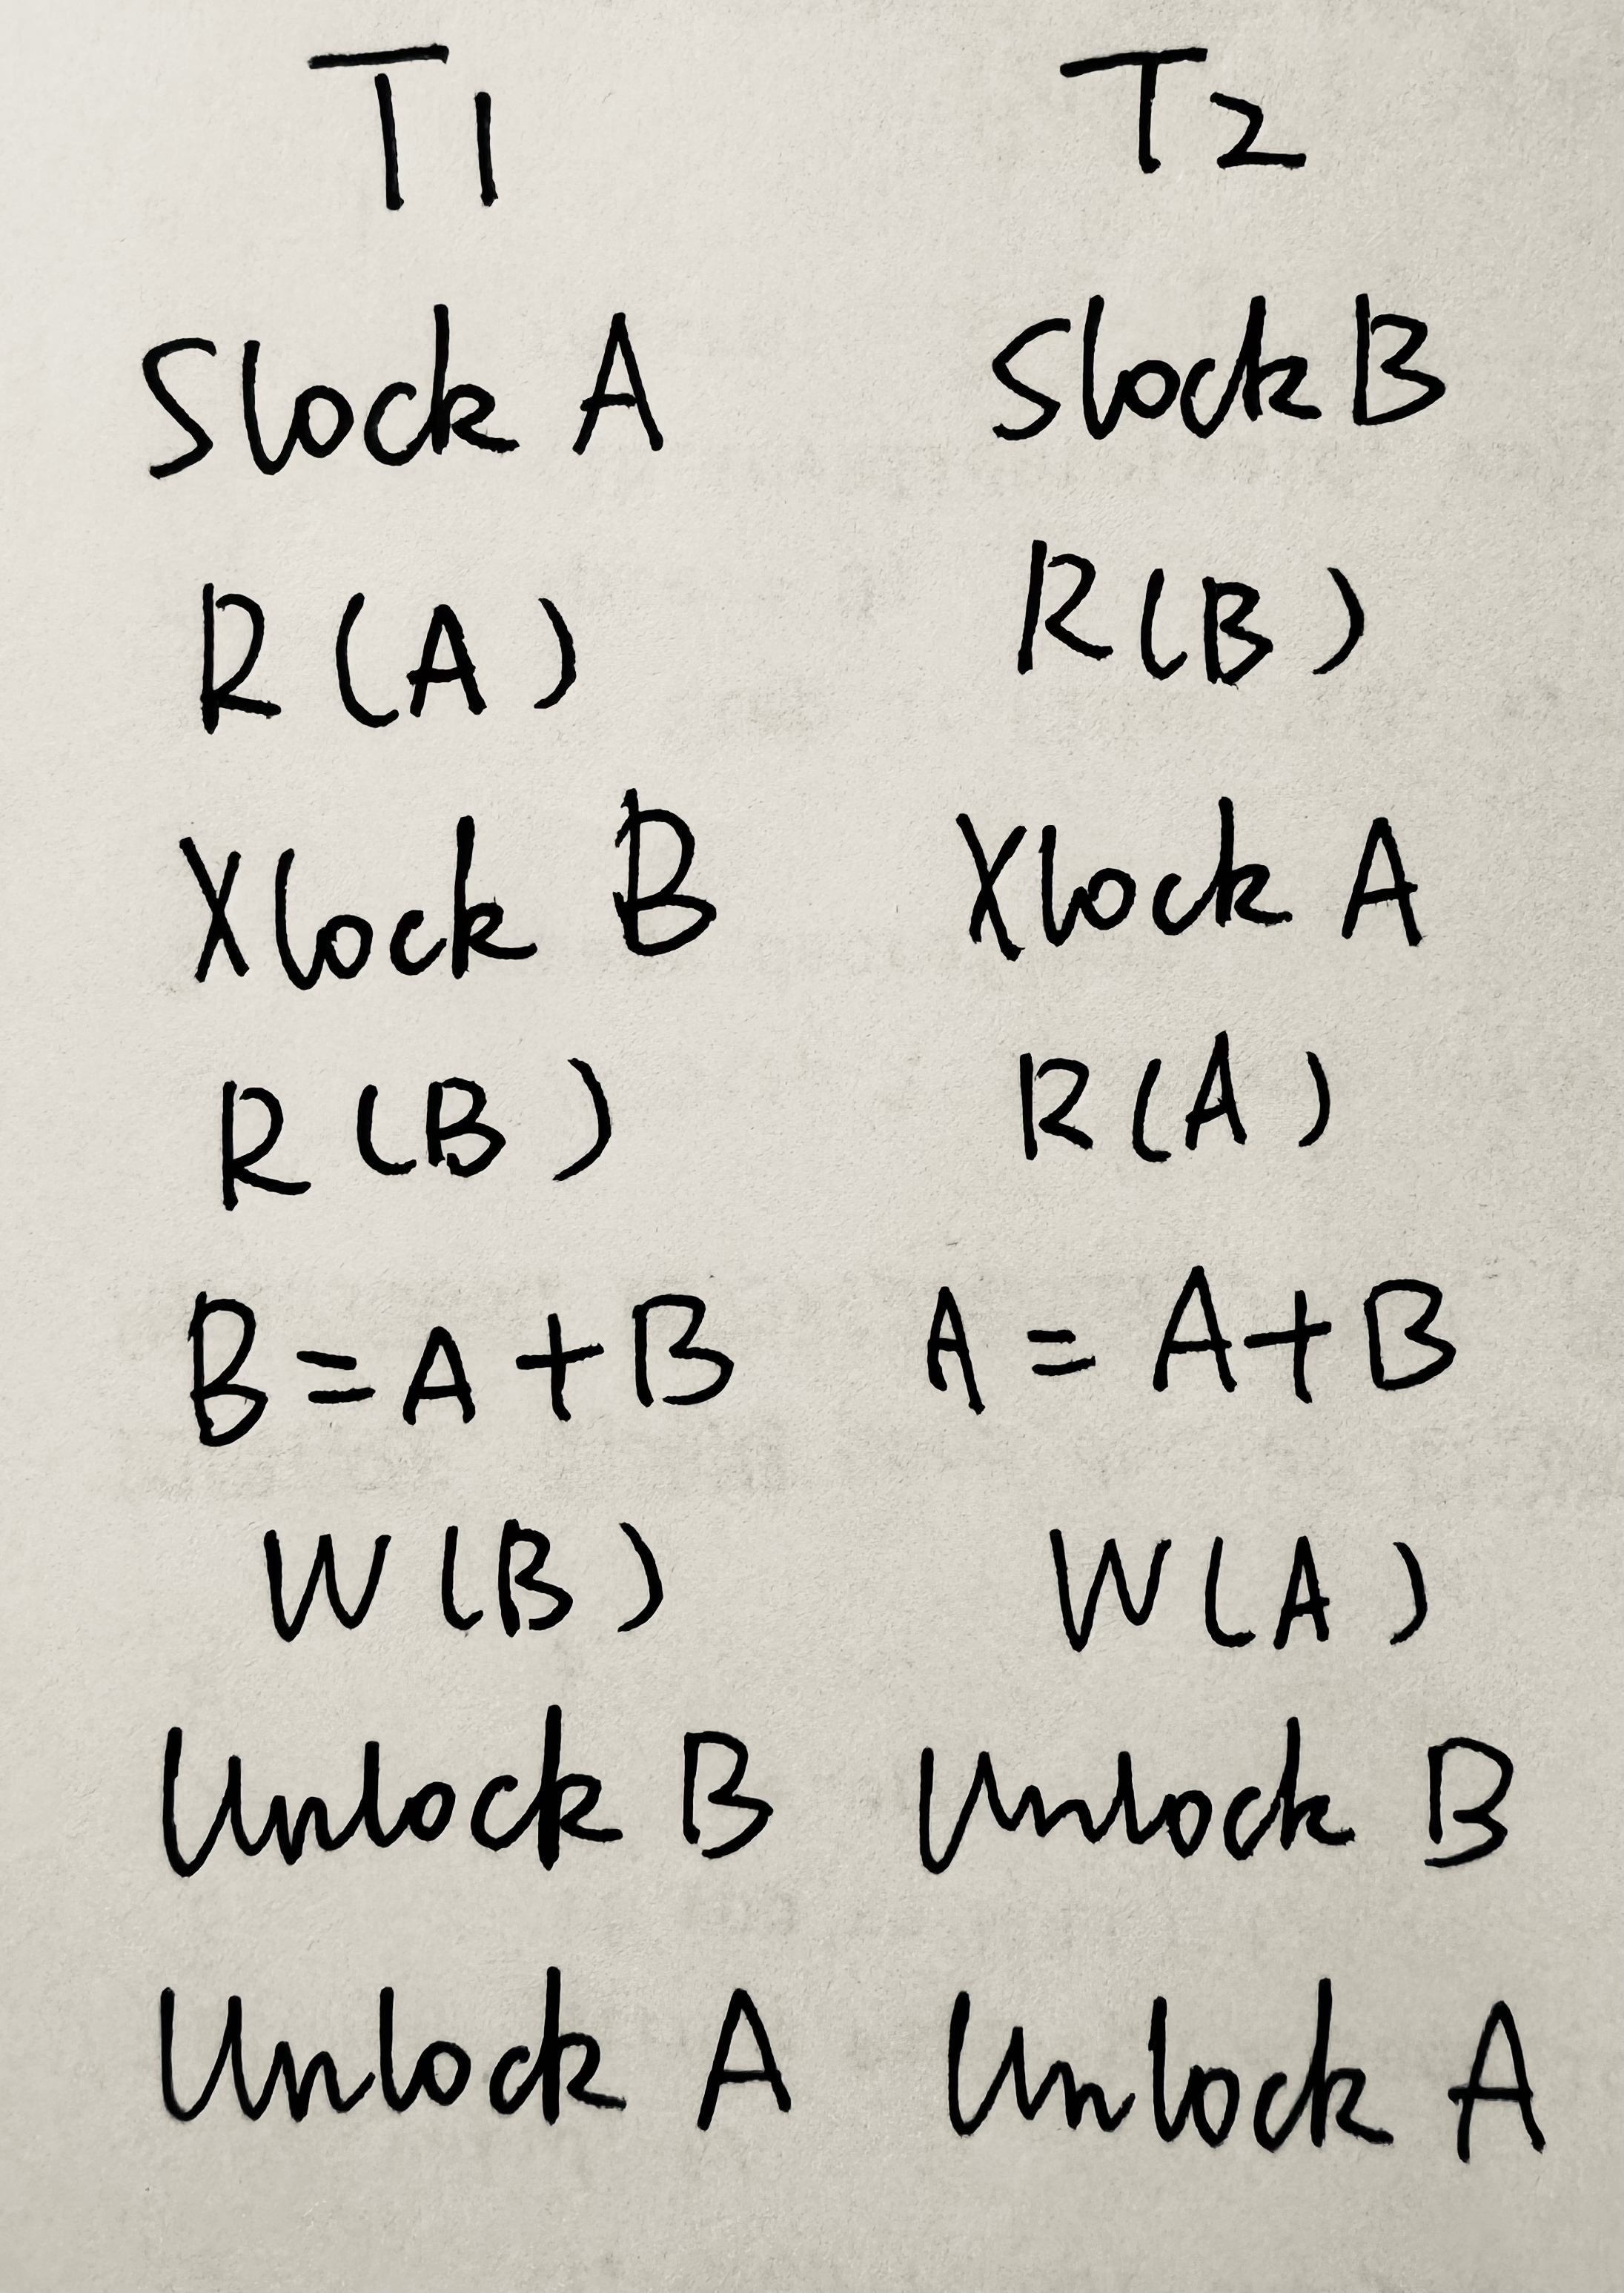 T1 T2
Slock A Slock B
R(A) R(B)
Xlock B Xlock A
R(B) R(A)
B=A+B A=A+B
W(B) W(A)
Unlock B Unlock B
Unlock A Unlock A